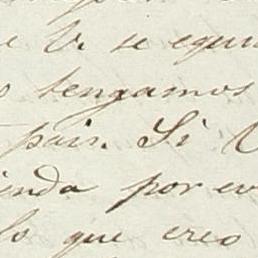 e V. se equi
o tengamos
pais. Si V
ienda por ev
lo que creo